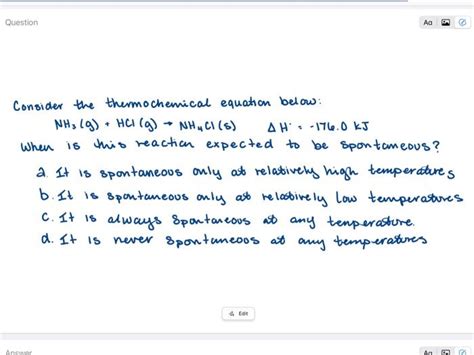 Question
Aa
Consider the thermochemical equation below:
NH₃(g) + HCl(g) → NH₄Cl(s) ΔH = -176.0 kJ
When is this reaction expected to be spontaneous?
a. It is spontaneous only at relatively high temperatures
b. It is spontaneous only at relatively low temperatures
c. It is always spontaneous at any temperature.
d. It is never spontaneous at any temperatures
Edit
Answer
Aa